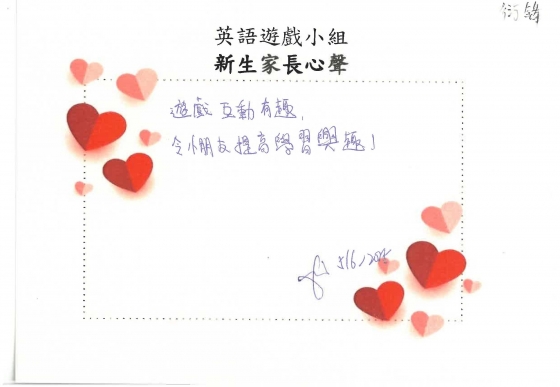 英語遊戲小組
新生家長心聲
遊戲互動有趣,
令小朋友提高學習興趣!